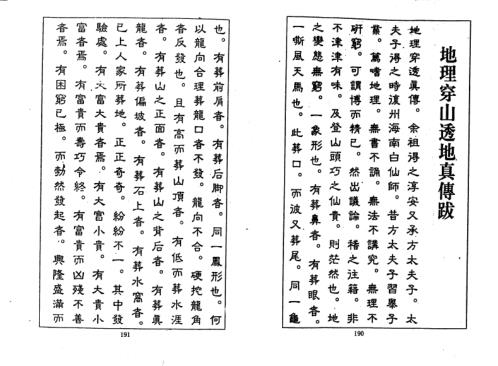 地理穿山透地真傳跋
地理穿透真傳。余祖得之淳安又承方太夫子。太
夫子得之時瀼州海南白仙師。昔方太夫子習舉子
業。篤嗜地理。無書不誦。無法不講究。無理不
研窮。可謂博而精已。然出議論。稽之往籍。非
不津津有味。及登山頭巧之仙貴。則茫然也。地
之變態無窮。一象形也。有葬鼻者。有葬眼者。有
一嘶風天馬也。此葬口。而彼又葬尾。同一龜
190
也。有葬前肩者。有葬后脚者。同一鳳形也。何
以龍向合理葬龍口者不發。龍向不合。硬挖龍角
者反發也。且有高而葬山頂者。有低而葬水涯
者。有葬山之正面者。有葬山之背后者。有葬眞
龍者。有葬偏坡者。有葬石上者。有葬水窩者。
已上人家所葬地。正正奇奇。紛紛不一。其中發
驗處。有大富大貴者焉。有大富小貴。有大貴小
富者焉。有富貴而壽巧令終。有富貴而凶殘不善
者焉。有困窮已極。而勃然發起者。興隆盛滿而
191